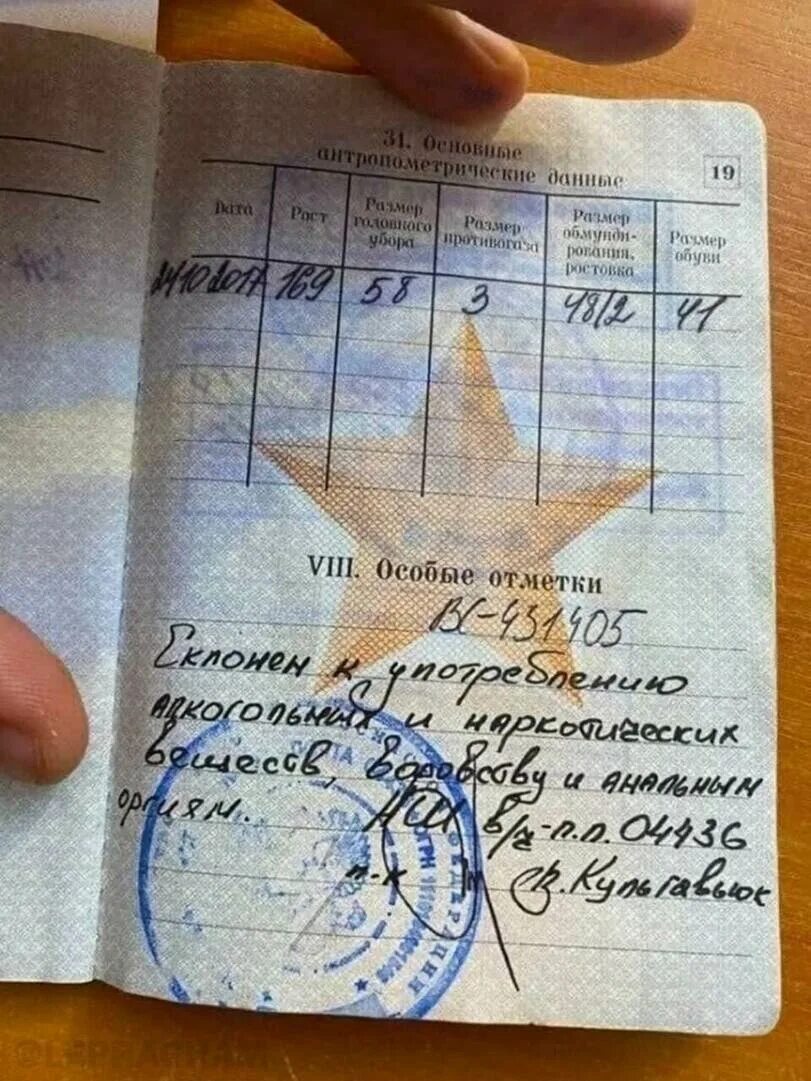 31. Основные
антропометрические данные
19
Дата
Рост
Размер головного убора
Размер противогаза
Размер обмунди-рования, ростовка
Размер обуви
24102017 169 58 3 48/2 41
VIII. Особые отметки
ВС-431405
Склонен к употреблению
алкогольных и наркотических
веществ, воровству и анальным
оргиям. НШ в/ч-п.п. 04436
п-к Кульгавьюк
ФЕДЕРАЦИИ